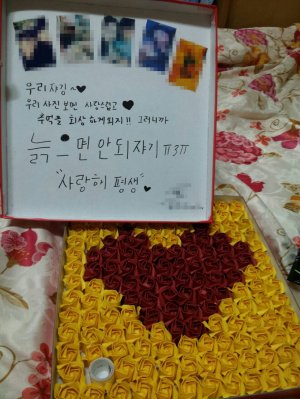 우리자깅~♥
우리 사진 보면 사랑스럽고 ♥
추억을 회상하게되지!! 그러니까
늙으면안되쟈기 ㅠ3ㅠ
"사랑해 평생"♥